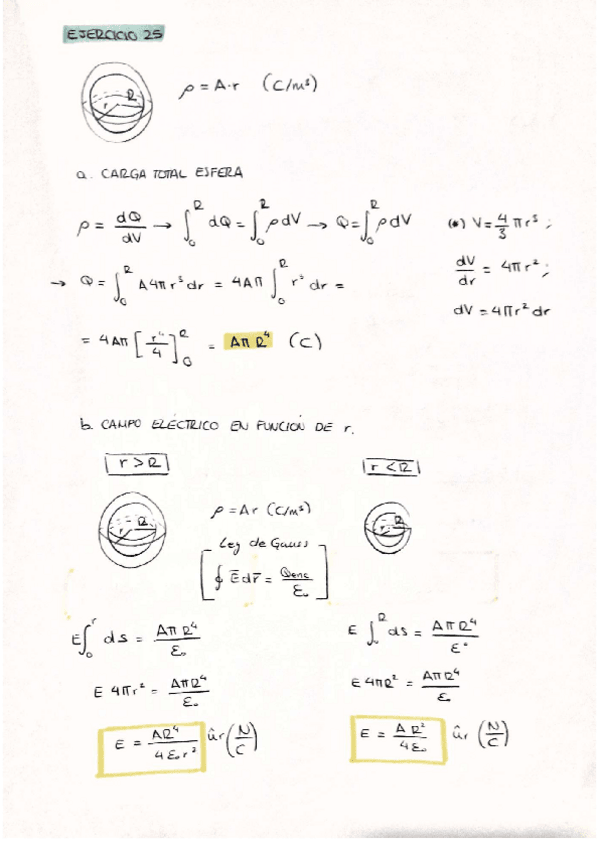 EJERCICIO 25
R
r
ρ = A·r (C/m³)
a. CARGA TOTAL ESFERA
ρ = dQ/dV → ∫₀ᴿ dQ = ∫₀ᴿ ρdV → Q = ∫₀ᴿ ρdV
(•) V = 4/3 πr³ ;
dV/dr = 4πr² ;
dV = 4πr² dr
→ Q = ∫₀ᴿ A4πr³ dr = 4Aπ ∫₀ᴿ r³ dr =
= 4Aπ [r⁴/4]₀ᴿ = AπR⁴ (C)
b. CAMPO ELÉCTRICO EN FUNCIÓN DE r.
r > R
r < R
R
r
ρ = Ar (C/m³)
R
r
Ley de Gauss
∮ E̅ dr̅ = Qenc/ε₀
E ∫₀ʳ ds = AπR⁴/ε₀
E 4πr² = AπR⁴/ε₀
E = AR⁴/4ε₀r² ûr (N/C)
E ∫₀ᴿ ds = AπR⁴/ε₀
E 4πR² = AπR⁴/ε₀
E = AR²/4ε₀ ûr (N/C)